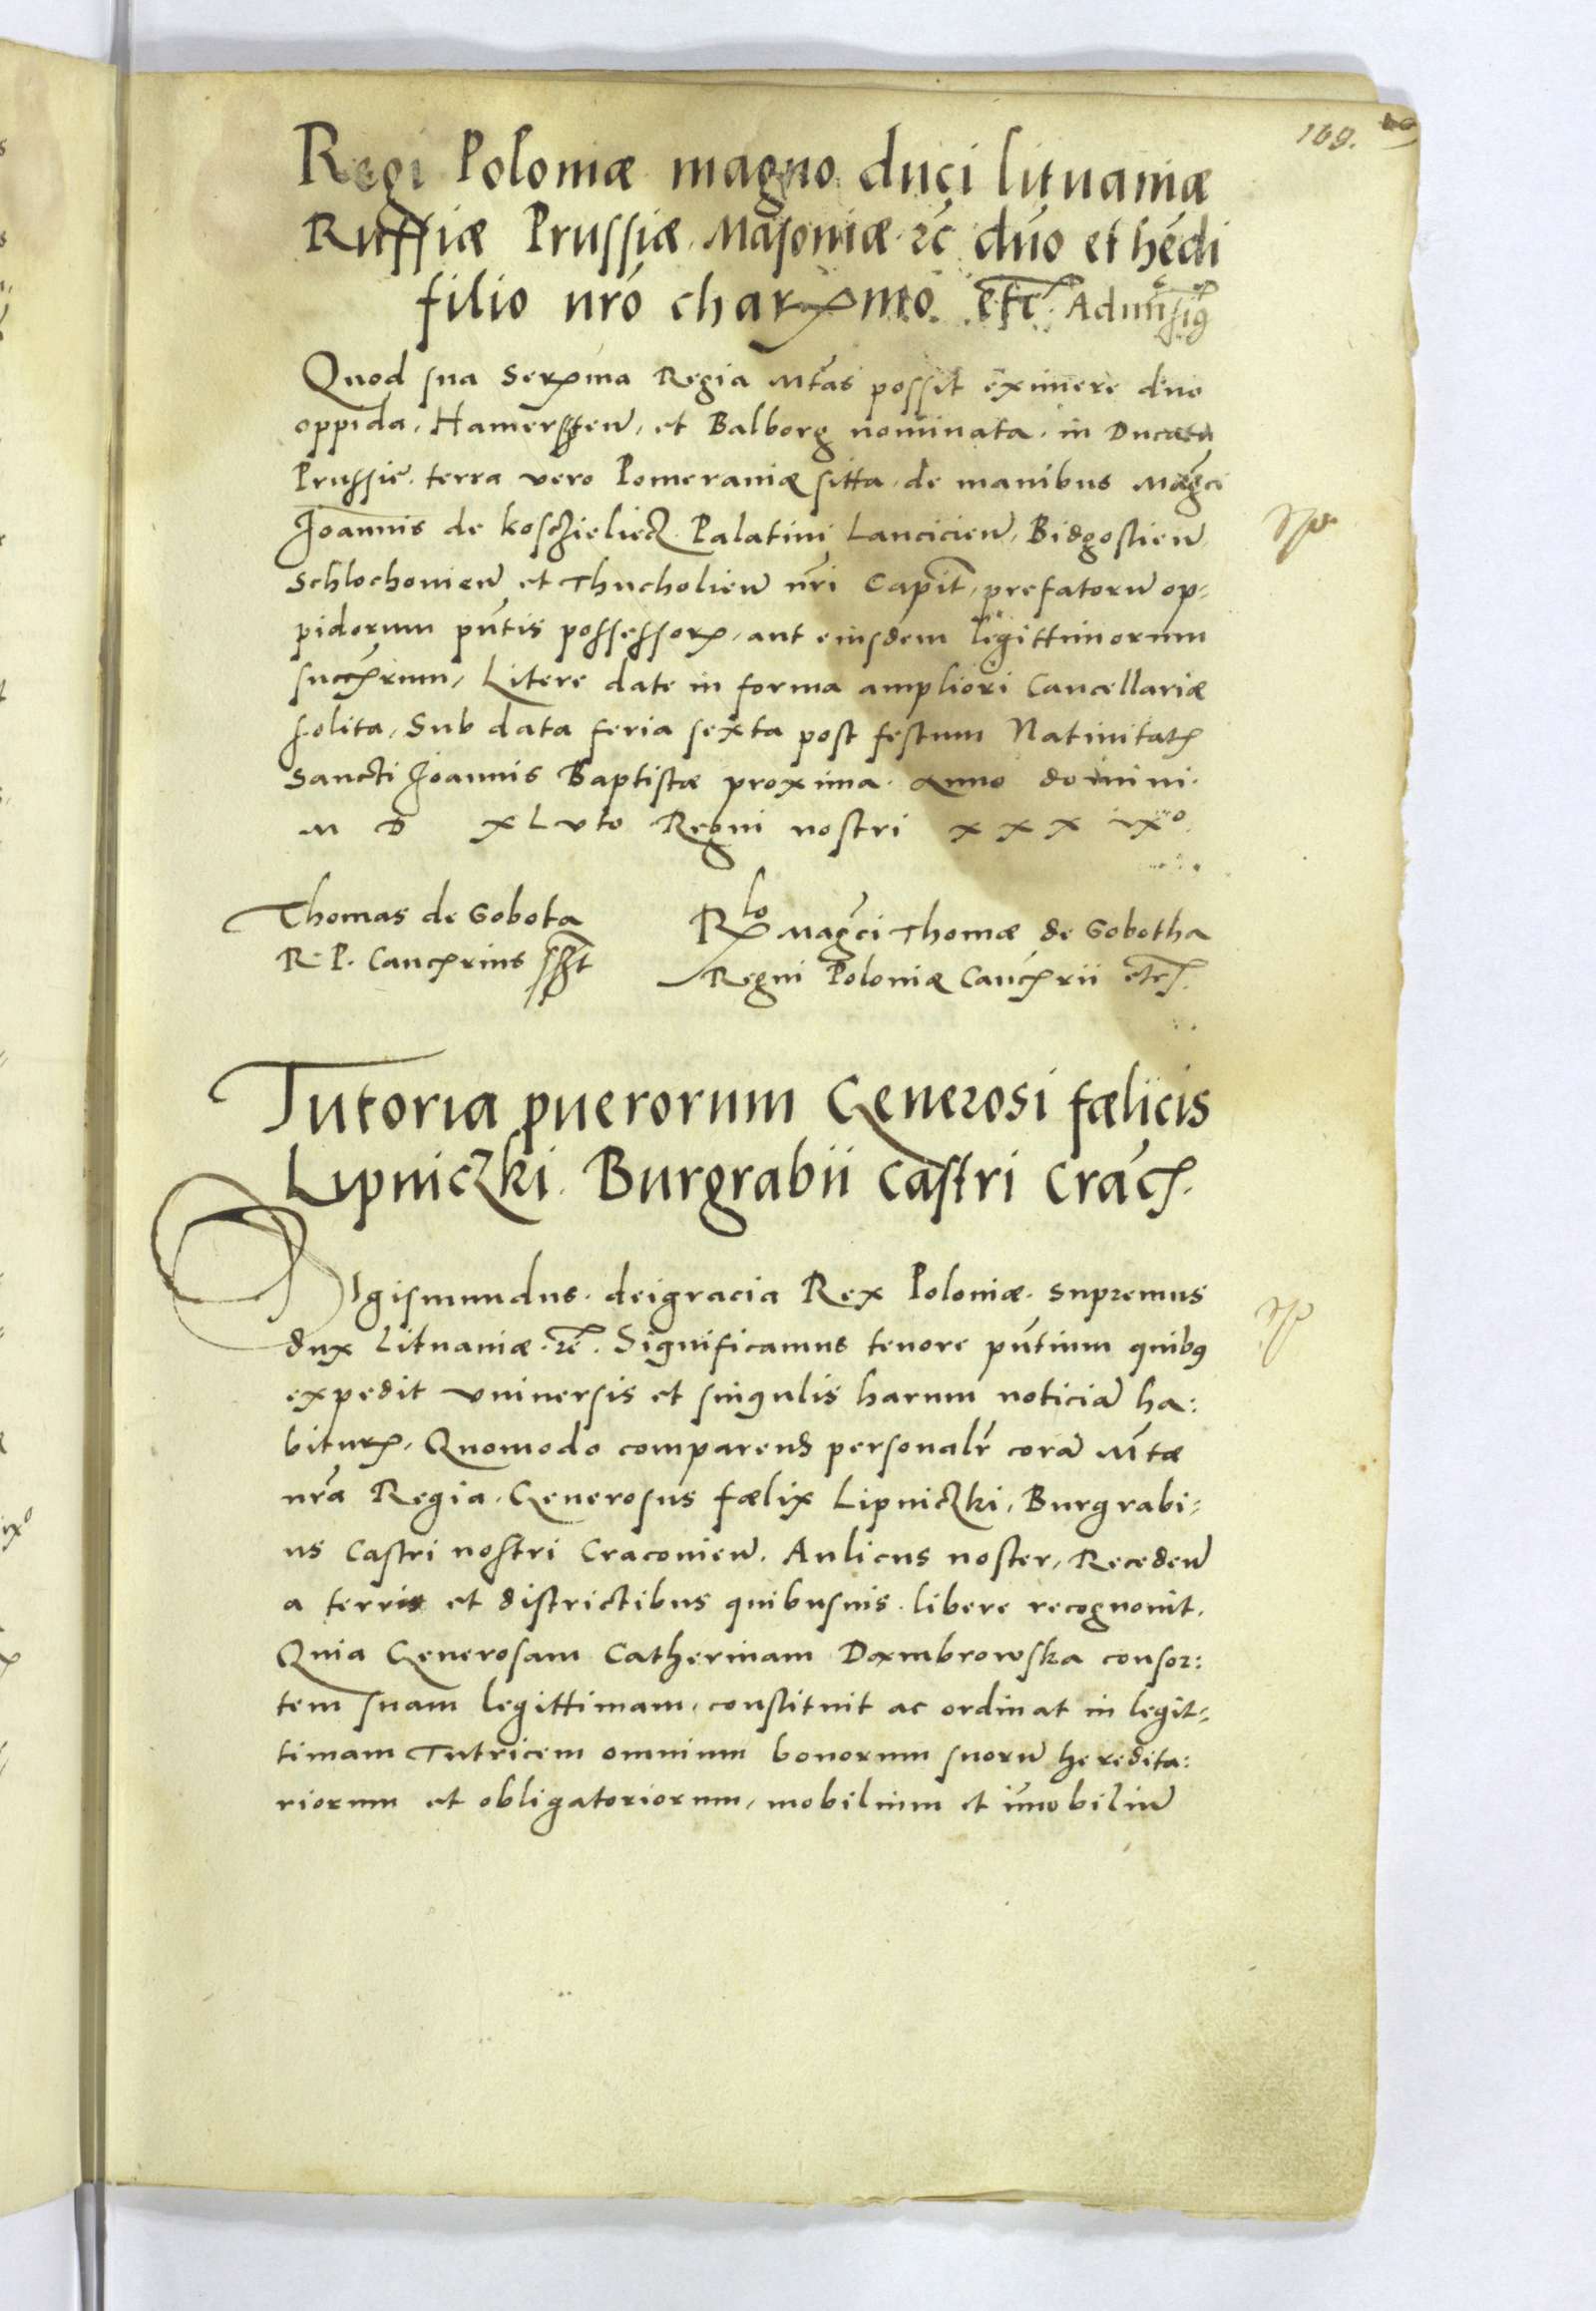 169.
Regi Poloniæ magno duci lituaniæ
Russiæ Prussiæ. Masoviæ. ꝛc̄ dn̄o et hēdi
filio nr̄o charꝫmo. etc̄.
Quod sua Serꝫma Regia Mt̄as possit eximere duo
oppida, Hamerstein̄, et Balborg nominata. in Ducatu
Prussie. terra vero Pomeraniæ sitta. de manibus Mag̃ci
Joannis de kosczieliecz. Palatini Lancicien̄, Bidgostien̄,
Schlochovien̄ et Thucholien̄ nr̄i Capit̄, prefatorū op-
pidorum pn̄tis possessorꝫ, aut eiusdem legittimorum
succꝫrum, Litere date in forma ampliori Cancellariæ
solita, Sub data feria sexta post festum Nativitatꝫ
Sancti Joannis Baptistæ proxima. Anno domini.
M D XLvto Regni nostri x x x ixº.
Thomas de Sobota
R. P. Cancꝫrius sszt
Rlo Mag̃ci Thomæ de Sobotha
Regni Poloniæ Cancꝫrii etcꝫ.
Tutoria puerorum Generosi fælicis
Lipniczki. Burgrabii castri Cracꝫ.
Sigismundus. deigracia Rex Poloniæ. supremus
dux Lituaniæ. ꝛc̄. Significamus tenore pn̄tium quibꝯ
expedit universis et singulis harum noticiā ha:
biturꝫ, Quomodo comparens personalr̄ corā Mt̄æ
nr̄a Regia. Generosus fælix Lipniczki, Burgrabi-
us Castri nostri Cracovien̄. Aulicus noster, Receden̄
a terris et districtibus quibusuis. libere recognovit.
Quia Generosam Catherinam Dæmbrowska consor:
tem suam legittimam, constituit ac ordinat in legit-
timam Tutricem omnium bonorum suorū heredita:
riorum et obligatoriorum, mobilium et im̄obiliū